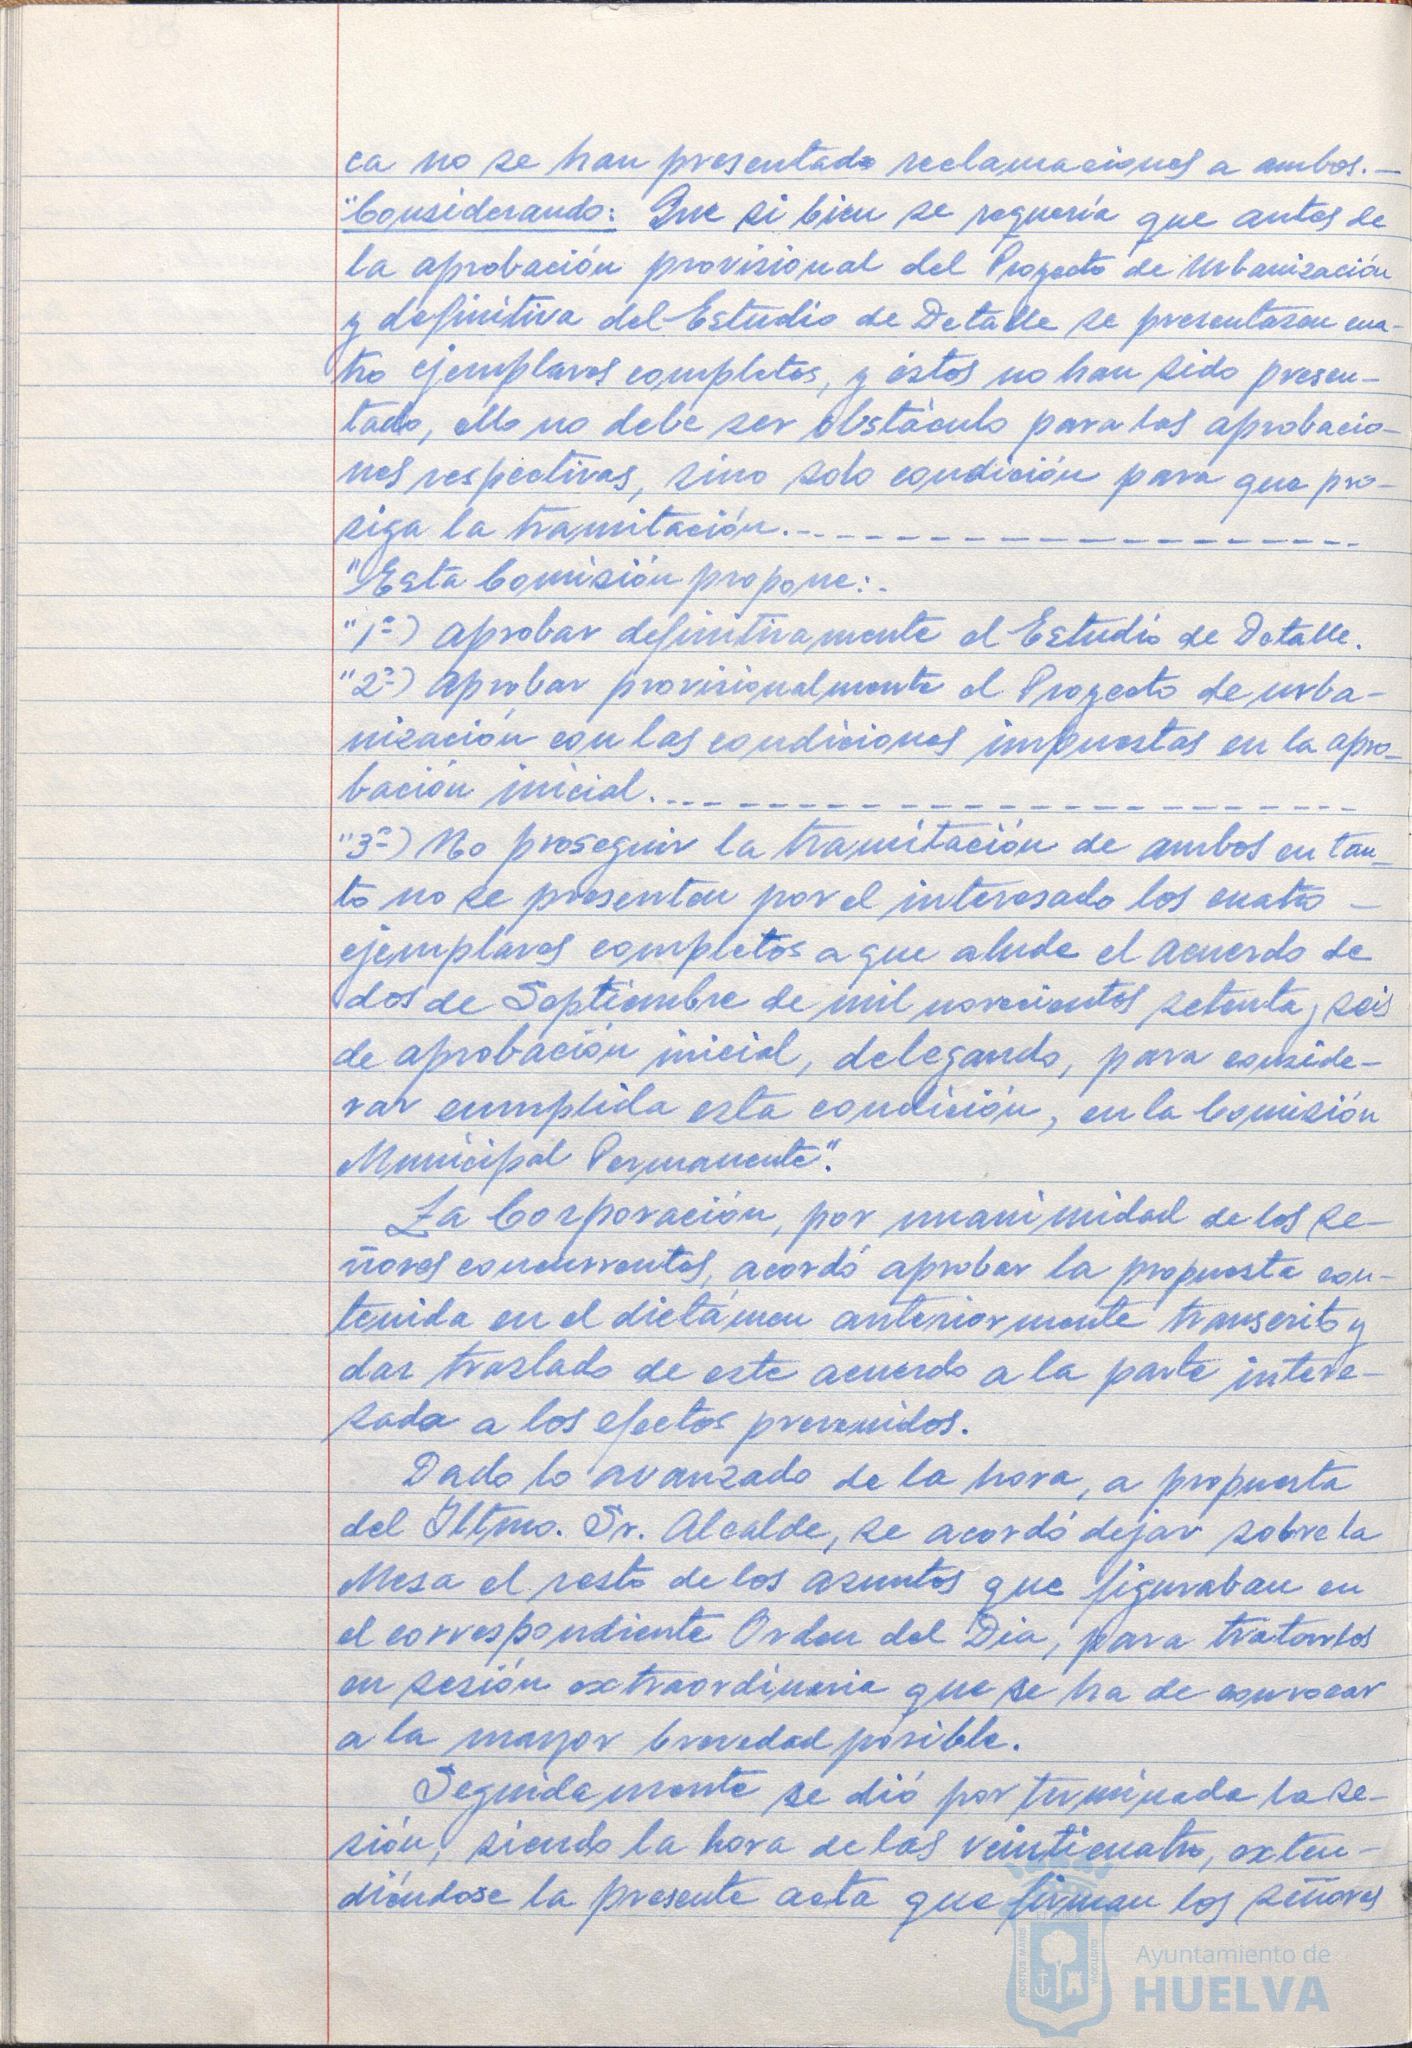 ca no se han presentado reclamaciones a ambos.—
"Considerando: Que si bien se requería que antes de
la aprobación provisional del Proyecto de Urbanización
y definitiva del Estudio de Detalle se presentasen cua-
tro ejemplares completos, y éstos no han sido presen-
tado, ello no debe ser obstáculo para las aprobacio-
nes respectivas, sino solo condición para que pro-
siga la tramitación.- - - - - - - - - - - - - - - - - - -
"Esta Comisión propone:-
"1º-) Aprobar definitivamente el Estudio de Detalle.
"2º-) Aprobar provisionalmente el Proyecto de urba-
nización con las condiciones impuestas en la apro-
bación inicial.- - - - - - - - - - - - - - - - - - - - - -
"3º-) No proseguir la tramitación de ambos en tan-
to no se presenten por el interesado los cuatro -
ejemplares completos a que alude el acuerdo de
dos de Septiembre de mil novecientos setenta y seis
de aprobación inicial, delegando, para conside-
rar cumplida esta condición, en la Comisión
Municipal Permanente".
La Corporación, por unanimidad de los se-
ñores concurrentes, acordó aprobar la propuesta con-
tenida en el dictámen anteriormente transcrito y
dar traslado de este acuerdo a la parte intere-
sada a los efectos prevenidos.
Dado lo avanzado de la hora, a propuesta
del Iltmo. Sr. Alcalde, se acordó dejar sobre la
Mesa el resto de los asuntos que figuraban en
el correspondiente Orden del Dia, para tratarlos
en sesión extraordinaria que se ha de convocar
a la mayor brevedad posible.
Seguidamente se dió por terminada la se-
sión, siendo la hora de las veinticuatro, exten-
diéndose la presente acta que firman los señores
Ayuntamiento de
HUELVA